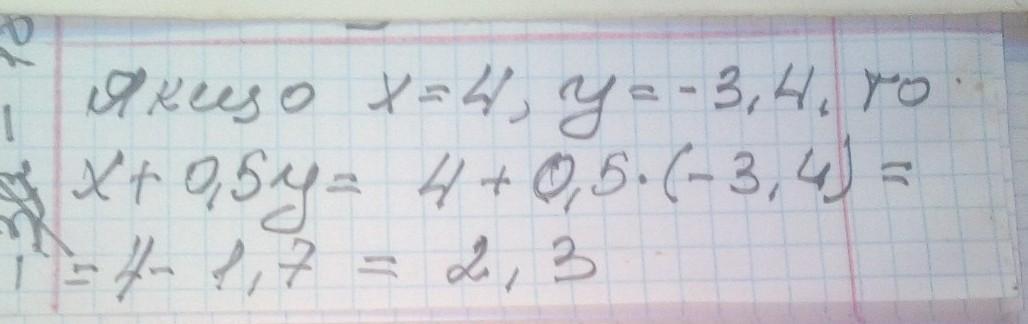 Якщо x = 4, y = -3,4, то
x + 0,5y = 4 + 0,5·(-3,4) =
= 4 - 1,7 = 2,3